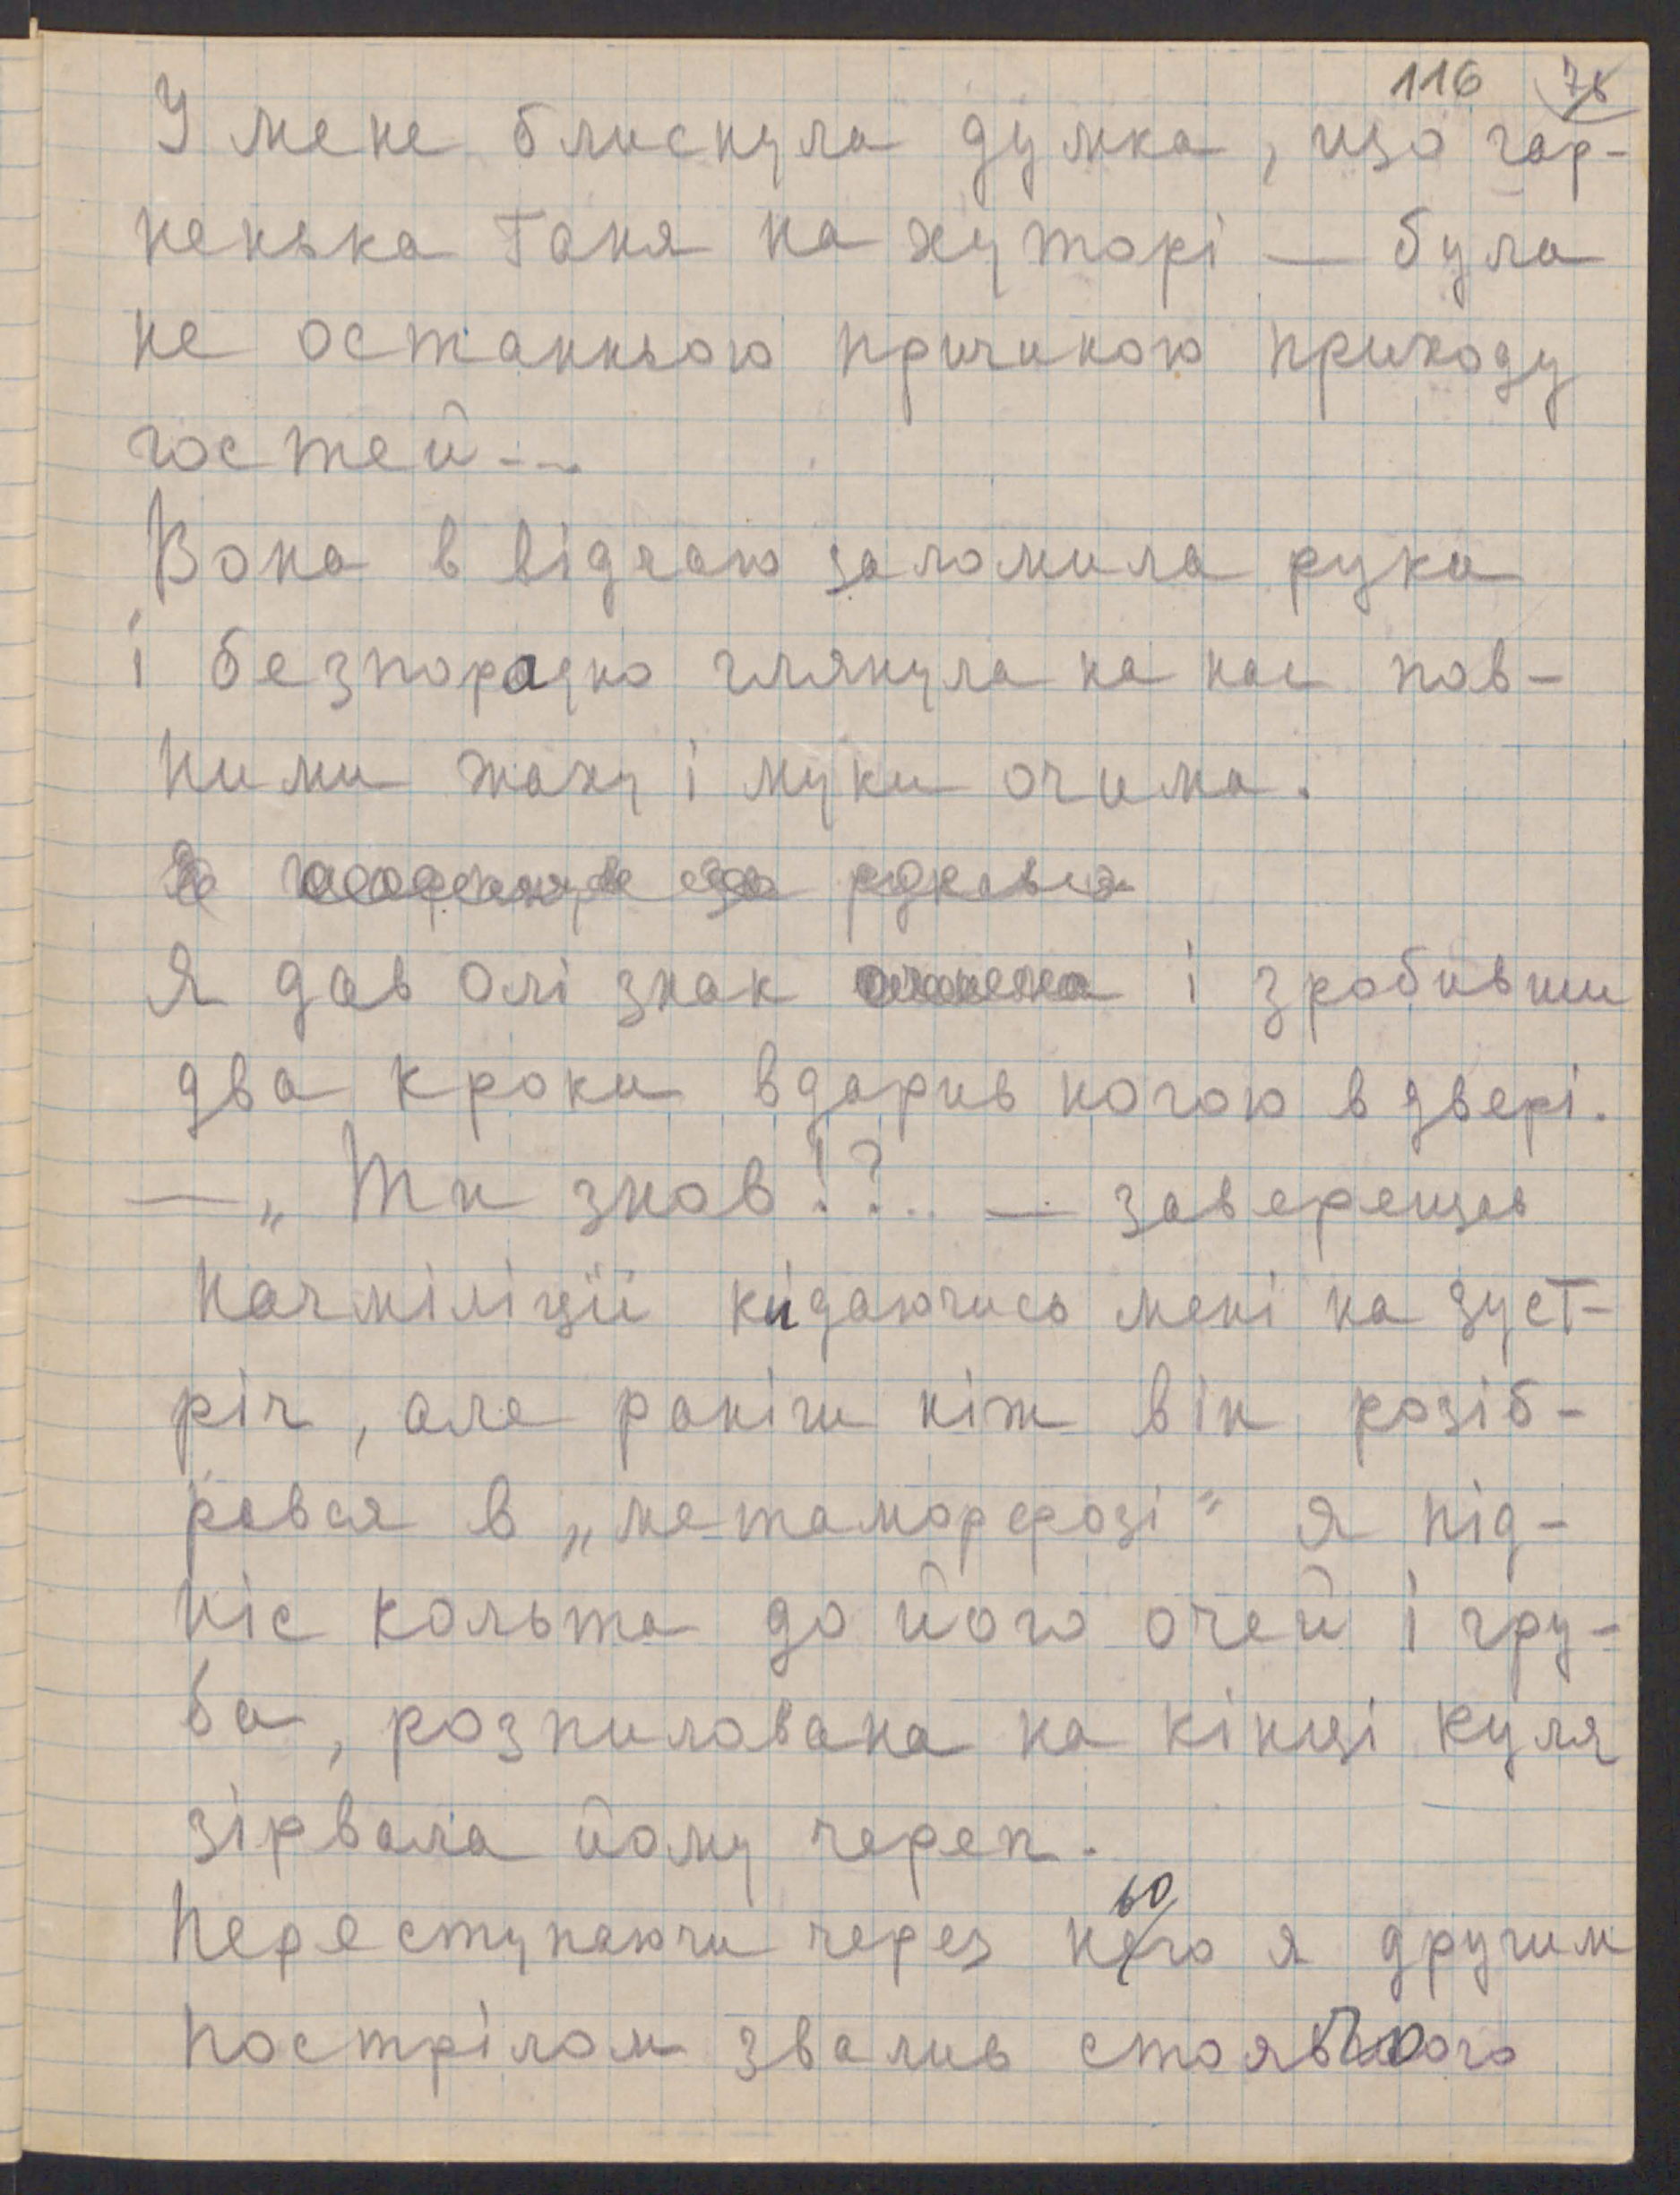 116 78
У мене блиснула думка, що гар-
ненька Ганя на хуторі — була
не останньою причиною приходу
гостей...
Вона в відчаю заломила руки
і безпорадно глянула на нас пов-
ними жаху і муки очима.
Я за рукав
Я дав Олі знак і зробивши
два кроки вдарив ногою в двері.
— „Ти знов!?.. — заверещав
начміліції кидаючись мені на зуст-
річ, але раніш ніж він розіб-
рався в „метаморфозі" я під-
ніс кольта до його очей і гру-
ба, розпилована на кінці куля
зірвала йому череп.
Переступаючи через нього я другим
пострілом звалив стоячого